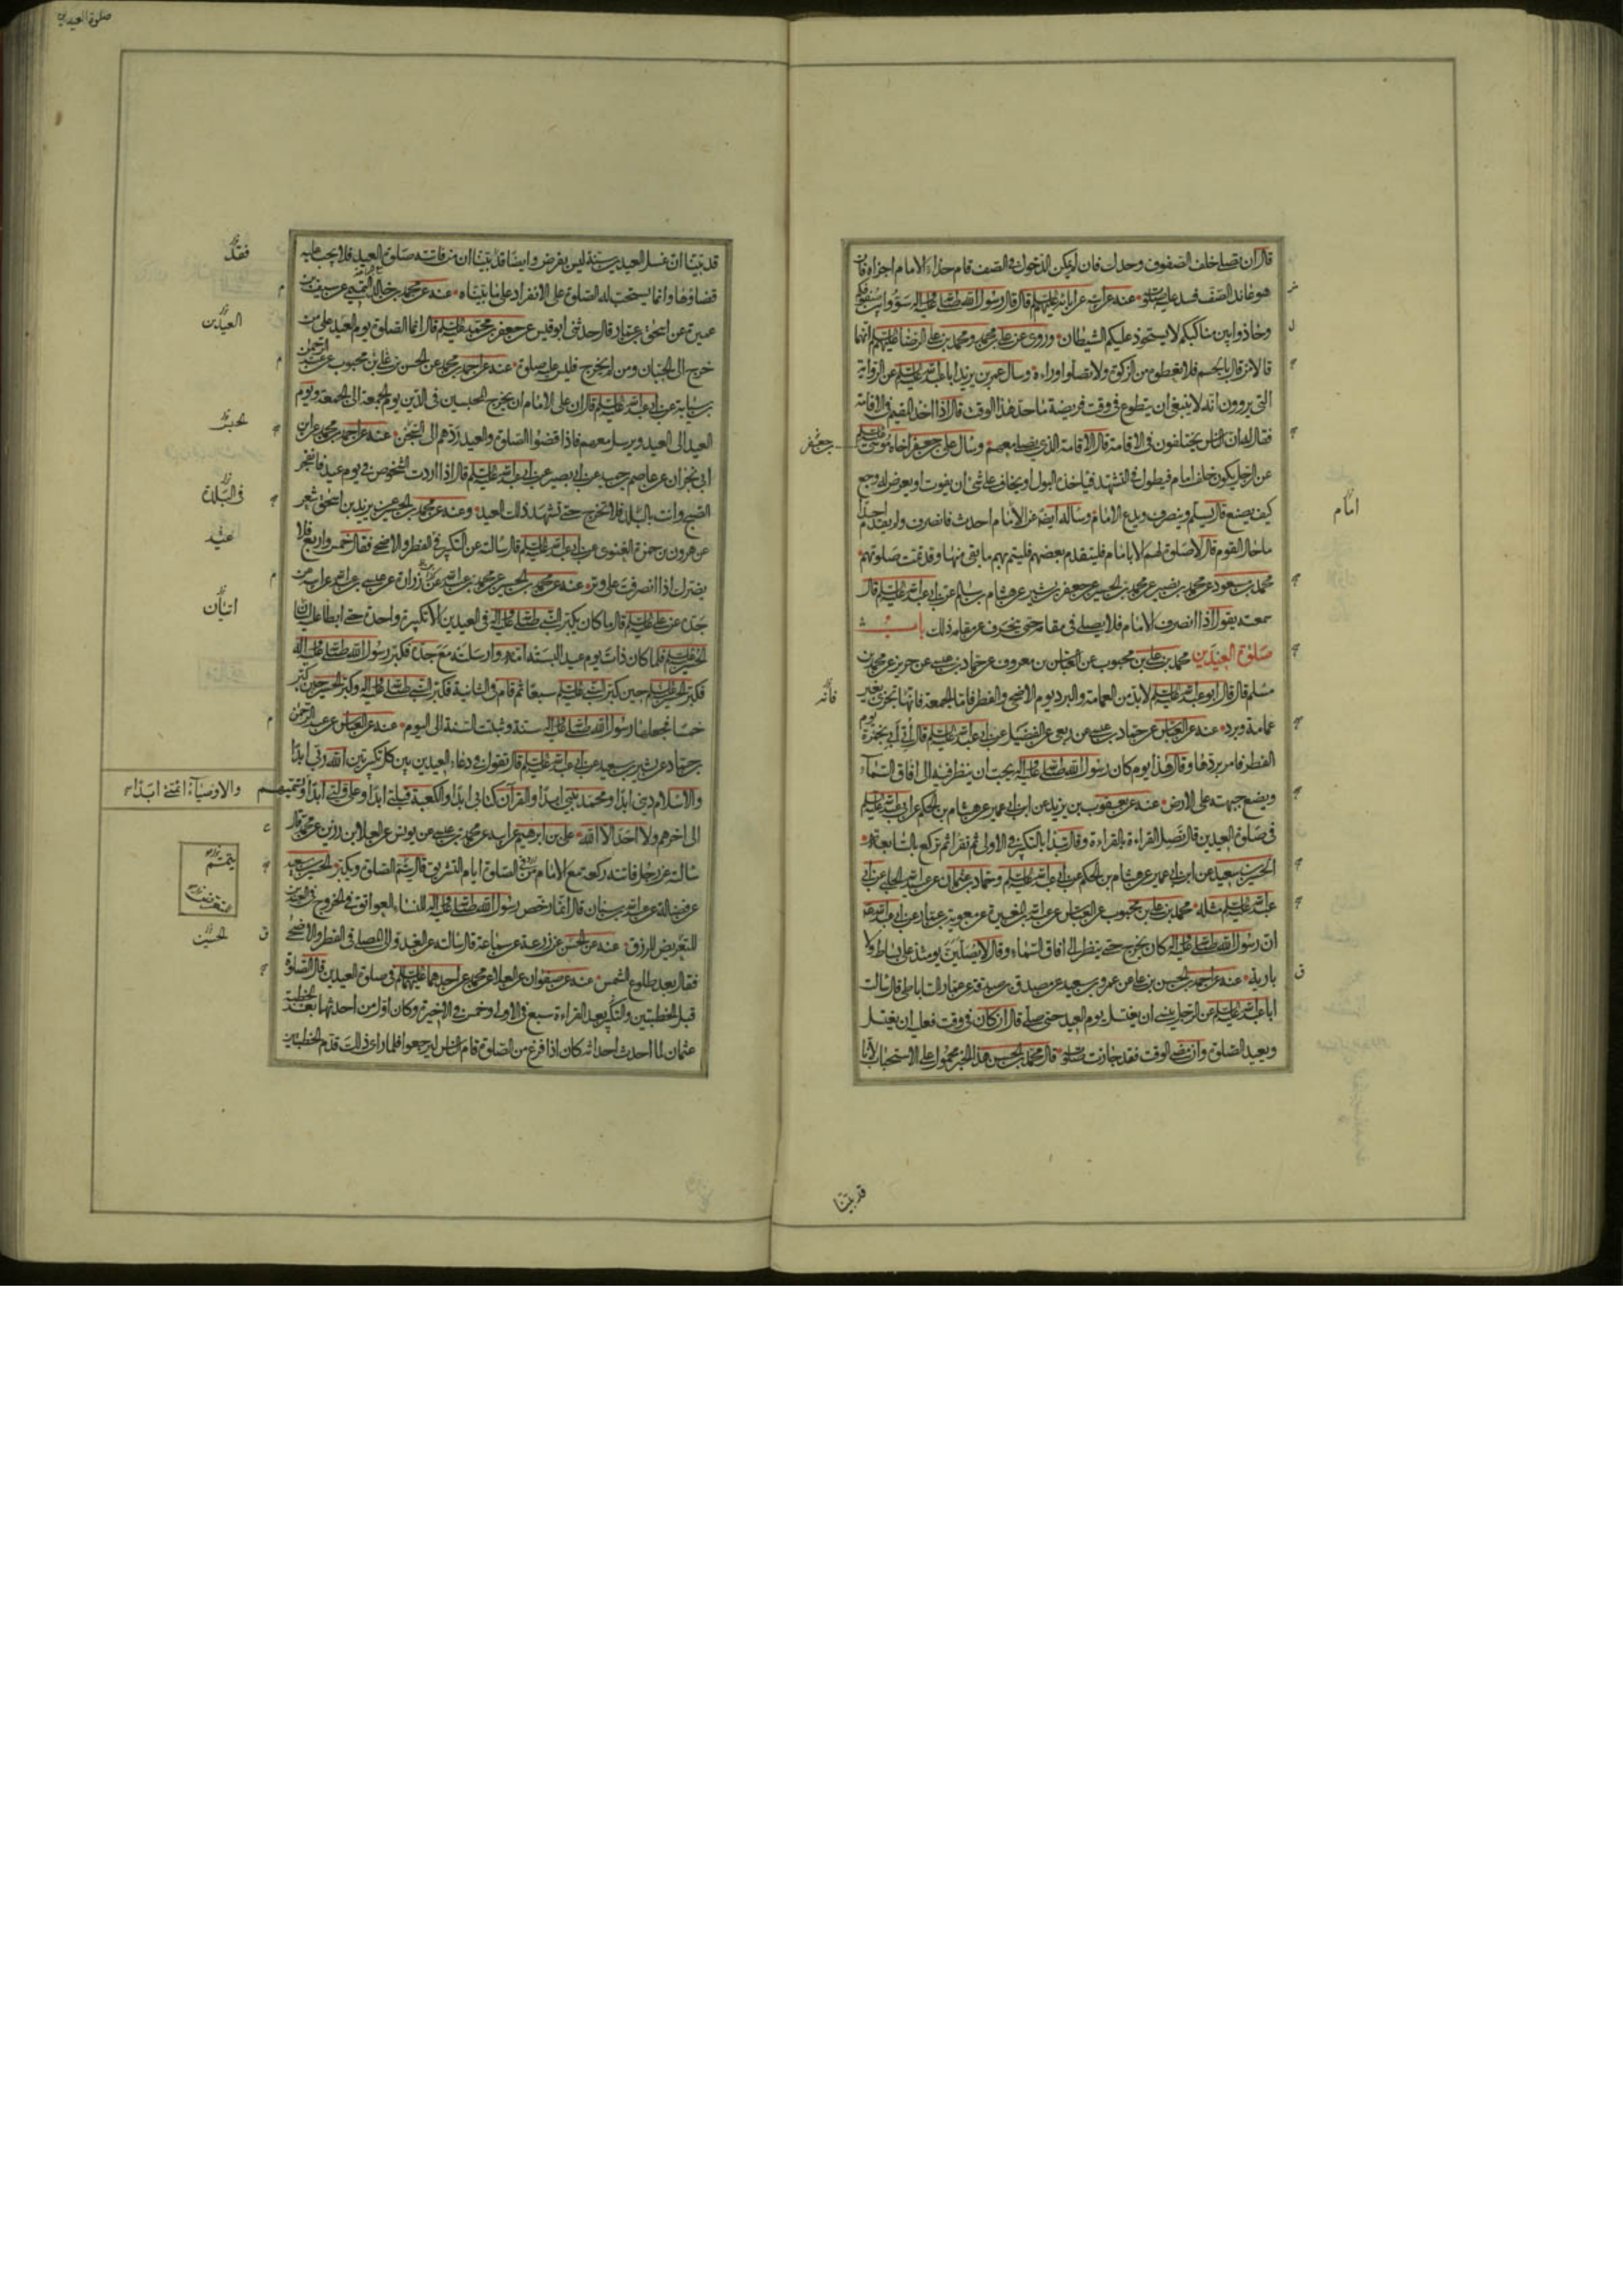 صلوة العيدين
قال ان تصلي خلف الصفوف وحدك فان لم يمكن الدخول في الصف قام حذاء الامام اجزاه فان
هو عاند الصف فسد عليه صلوته عنه عن ابيه عن ابائه عليهم السلام قال قال رسول الله صلى الله عليه واله سووا بين صفوفكم
وحاذوا بين مناكبكم لا يستحوذ عليكم الشيطان وروى عن علي بن محمد ومحمد بن علي الرضا عليهم السلام انهما
قالا من قال بالجسم فلا تعطوه من الزكوة ولا تصلوا وراءه وسال عمر بن يزيد ابا عبد الله عليه السلام عن الرواية
التي يروون انه لا ينبغي ان يتطوع في وقت فريضة ما حد هذا الوقت قال اذا اخذ المقيم في الاقامة
فقال له ان الناس يختلفون في الاقامة قال الاقامة الذي يصلي معهم وسال علي بن جعفر اخاه موسى عليه السلام
جعفر
عن الرجل يكون خلف امام فيطول في التشهد فياخذه البول او يخاف على شئ ان يفوت او يعرض له وجع
كيف يصنع قال يسلم وينصرف ويدع الامام وساله ايضا عن الامام احدث فانصرف ولم يقدم احدا
امام
ما حال القوم قال لا صلوة لهم الا بامام فليتقدم بعضهم فليتم بهم ما بقى منها وقد تمت صلوتهم
محمد بن مسعود عن محمد بن نصير عن محمد بن الحسين عن جعفر بن بشير عن هشام بن سالم عن ابي عبد الله عليه السلام قال
سمعته يقول اذا انصرف الامام فلا يصلي في مقامه حتى ينحرف عن مقامه ذلك باب
صلوة العيدين محمد بن علي بن محبوب عن العباس بن معروف عن حماد بن عيسى عن حريز عن محمد بن
مسلم قال قال ابو عبد الله عليه السلام لا بد من العمامة والبرد يوم الاضحى والفطر فاما الجمعة فانها تجزى بغير
فانه
عمامة وبرد عنه عن العباس عن حماد بن عيسى عن ربعي عن الفضيل عن ابي عبد الله عليه السلام قال أتي أبي بخمرة يوم
الفطر فامر بردها وقال هذا يوم كان رسول الله صلى الله عليه واله يحب ان ينظر فيه الى افاق السماء
ويضع جبهته على الارض عنه عن يعقوب بن يزيد عن ابن ابي عمير عن هشام بن الحكم عن ابي عبد الله عليه السلام
في صلوة العيدين قال تصل القراءة بالقراءة وقال تبدا بالتكبير في الاولى ثم تقرا ثم تركع بالسابعة
الحسين بن سعيد عن ابن ابي عمير عن هشام بن الحكم عن ابي عبد الله عليه السلام وحماد بن عثمان عن عبيد الله الحلبي عن ابي
عبد الله عليه السلام مثله محمد بن علي بن محبوب عن العباس عن عبد الله بن المغيرة عن معوية بن عمار عن ابي عبد الله
ان رسول الله صلى الله عليه واله كان يخرج حتى ينظر الى افاق السماء وقال لا يصلين يومئذ على بساط ولا
بارية عنه عن احمد بن الحسن بن علي عن عمرو بن سعيد عن مصدق بن صدقة عن عمار الساباطي قال سالت
ابا عبد الله عليه السلام عن الرجل ينسى ان يغتسل يوم العيد حتى صلى قال ان كان في وقت فعليه ان يغتسل
ويعيد الصلوة وان مضى الوقت فقد جازت صلوته قال محمد بن الحسن هذا الخبر محمول على الاستحباب لانا
قد بينا
قد بينا ان غسل العيدين سنة ليس بفرض وايضا قد بينا ان من فاتته صلوة العيد فلا يجب عليه
فقد
قضاؤها وانما يستحب له الصلوة على الانفراد على ما بيناه عنه عن محمد بن خالد التميمي عن سيف بن
عميرة عن اسحق بن عمار قال حدثني ابو قيس عن جعفر بن محمد عليه السلام قال انما الصلوة يوم العيد على من
العيدين
خرج الى الجبان ومن لم يخرج فليس عليه صلوة عنه عن احمد بن محمد عن الحسن بن علي بن محبوب عن عبد الرحمن
بن سيابة عن ابي عبد الله عليه السلام قال ان على الامام ان يخرج المحبسين في الدين يوم الجمعة الى الجمعة ويوم
العيد الى العيد ويرسل معهم فاذا قضوا الصلوة والعيد ردهم الى السجن عنه عن احمد بن محمد عن ابن
ابي نجران عن عاصم بن حميد عن ابي بصير عن ابي عبد الله عليه السلام قال اذا اردت الشخوص في يوم عيد فانفجر
الصبح وانت بالبلد فلا تخرج حتى تشهد ذلك العيد وعنه عن محمد بن الحسين عن يزيد بن اسحق شعر
في البلدة
عن هرون بن حمزة الغنوي عن ابي عبد الله عليه السلام قال سالته عن التكبير في الفطر والاضحى فقال خمس واربع فلا
عنه
يضرك اذا انصرفت على وتر عنه عن محمد بن الحسين عن محمد بن عبد الله عن زرارة عن عيسى بن عبد الله عن ابيه عن
جده عن علي عليه السلام قال ما كان يكبر النبي صلى الله عليه واله في العيدين الا تكبيرة واحدة حتى ابطا عليه لسان
اتيان
الحسين عليه السلام فلما كان ذات يوم عيد البسته امه وارسلته مع جده فكبر رسول الله صلى الله عليه واله
فكبر الحسين عليه السلام حين كبر النبي عليه السلام سبعا ثم قام في الثانية فكبر النبي صلى الله عليه واله وكبر الحسين حين كبر
خمسا فجعلها رسول الله صلى الله عليه واله سنة وثبتت السنة الى اليوم عنه عن العباس عن عبد الرحمن
بن حماد عن بشير بن سعيد عن ابي عبد الله عليه السلام قال تقول في دعاء العيدين بين كل تكبيرتين الله ربي ابدا
والاسلام ديني ابدا ومحمد نبيي ابدا والقرآن كتابي ابدا والكعبة قبلتي ابدا وعلي وليي ابدا وتسميهم
والاوصياء ائمتي ابدا
الى اخرهم ولا احد الا الله علي بن ابرهيم عن ابيه عن محمد بن عيسى عن يونس عن العلا بن رزين عن محمد قال
سالته عن رجل فاتته ركعة مع الامام من الصلوة ايام التشريق قال يتم الصلوة ويكبر الحسين بن سعيد
يتمم
عن فضالة عن عبد الله بن سنان قال انما رخص رسول الله صلى الله عليه واله للنساء العواتق في الخروج في العيدين
للتعرض للرزق عنه عن الحسن عن زرعة عن سماعة قال سالته عن الغدو الى المصلى في الفطر والاضحى
الحسين
فقال بعد طلوع الشمس عنه عن صفوان عن العلاء عن محمد عن احدهما عليهما السلام في صلوة العيدين قال الصلوة
قبل الخطبتين والتكبير بعد القراءة سبع في الاولى وخمس في الاخيرة وكان اول من احدثها بعد الخطبة
عثمان لما احدث احداثه كان اذا فرغ من الصلوة قام الناس ليرجعوا فلما راى ذلك قدم الخطبتين